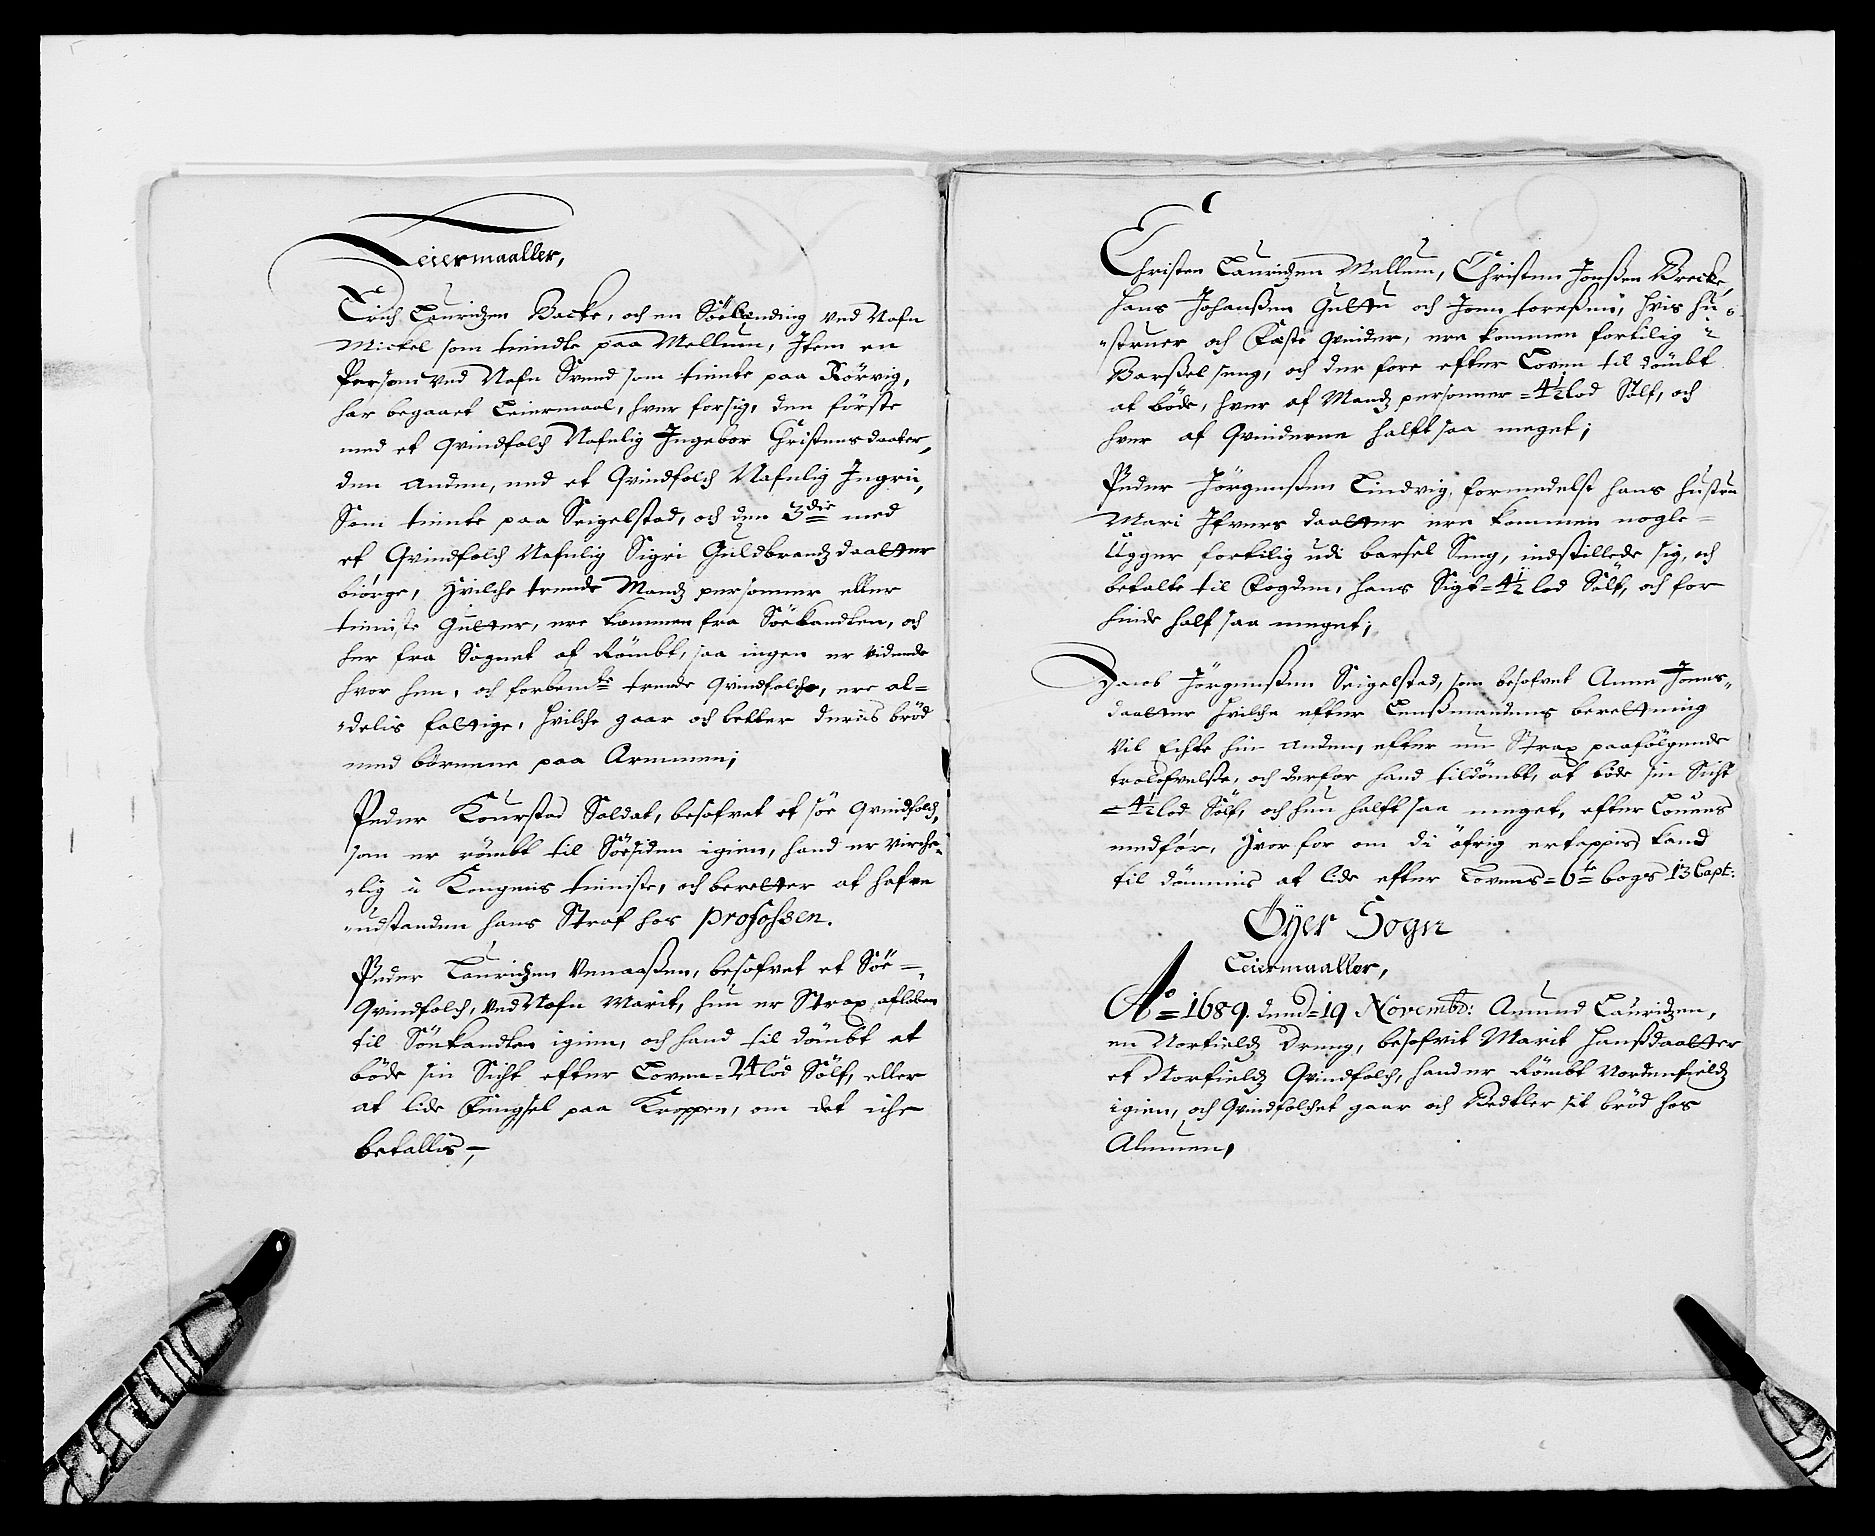 Leiermaaller,
Erich Lauridzen Backe, och en Söelænding ved Nafn
Mickel som tiendte paa Mellum, Item en
Person ved Nafn Svend som tiente paa Rörvig,
har begaaet Leiermaal, hver forsig, den förste
med et qvindfolch Nafnlig Ingebor Christensdaater,
den anden, med et Qvindfolch Nafnlig Ingri,
Som tiente paa Seigelstad, och den 3die med
et Qvindfolch Nafnlig Sigri Guldbrandz daatter
biörge, Hvilche trende Mandz personner eller
tieniste Gutter, ere kommen fra Söekandten, och
her fra Sognet af Römbt, saa ingen er vidende
hvor hen, och forbemte trende Qvindfolche, ere al=
delis fattige, Hvilche gaar och better deris bröd
med börnene paa Armmen;
Peder Kourstad Soldat, besofvet et söe Qvindfolch,
som er römbt til Söesiden igien, hand er virche=
lig i Kongens tieniste, och beretter at hafve
udstanden hans Straf hos profossen.
Peder Lauridzen Venaaßen, besofvet et Söe=
Qvindfolch, ved Nafn Marit, hun er Strax afleben
til Söekandten igien, och hand til dömbt at
böde sin Sicht efter Loven= 24 lod Sölf, eller
at lide Fengsel paa Kroppen, om det iche
betallis,
Christen Lauridzen Mellum, Christen Jonßen Brecke,
hans Johanßen Guttu och Joen toreßen, hvis hu=
struer och Fæste qvinder, ere kommen fortilig i
Barßel seng, och der fore efter Loven til dömbt
at böde, hver af Mandz personner = 4½ lod Sölf, och
hver af Qvinderne halft saa meget;
Peder Jörgenßen Lindvig, formedelst hans hustru
Mari Ifvers daatter ere kommen nogle
Ugger fortilig udi barsel Seng, indstillede sig, och
betalte til Fogden, hans Sigt = 4½ lod Sölf, och for
hinde half saa meget;
Jacob Jörgenßen Seigelstad, som besofvet Anne Joens
daatter hvilche efter Lenßmandens beretning
vil Echte hin anden, efter en Strax paafölgende
trolofvelße, och derfor hand tildömbt, at böde sin Sicht
= 4½ lod Sölf, och hun halft saa meget, efter Lovens
medför, Hvor for om di öfrig ertappis kand
til dömmis at lide efter Lovens = 6te bogs 13 Capt:
Öyer Sogn
Leiermaaller,
Ao = 1689. dend = 19 Novembr: Amund Lauridzen,
en Norfieldz Dreng, besofvit Marit Hanßdaatter
et Norfieldz Qvindfolch, hand er Römbt Nordenfieldz
igien, och Qvindfolchet gaar och Bedtler sit bröd hos
Almuen,